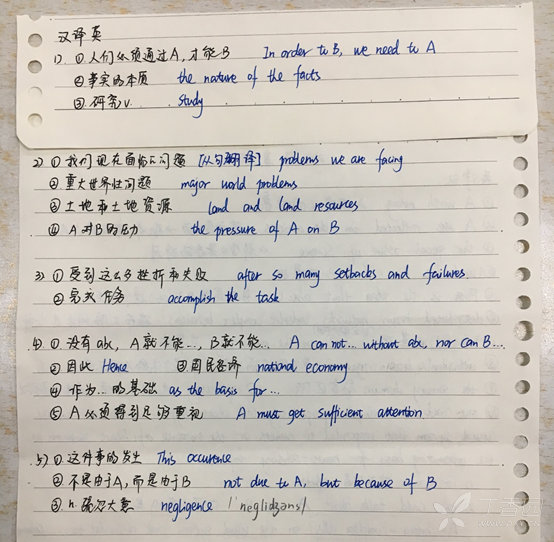 汉译英
1) ① 人们必须通过A, 才能B In order to B, we need to A
② 事实的本质 the nature of the facts
③ 研究 v. study
2) ① 我们现在面临的问题 [从句翻译] problems we are facing
② 重大世界性问题 major world problems
③ 土地和土地资源 land and land resources
④ A对B的压力 the pressure of A on B
3) ① 受到这么多挫折和失败 after so many setbacks and failures.
② 完成任务 accomplish the task
4) ① 没有abc, A就不能..., B就不能... A can not... without abc, nor can B...
② 因此 Hence ③ 国民经济 national economy
④ 作为...的基础 as the basis for...
⑤ A必须得到足够重视 A must get sufficient attention
5) ① 这件事的发生 This occurence
② 不是由于A, 而是由于B not due to A, but because of B
③ n. 疏忽大意 negligence /'neglidʒəns/